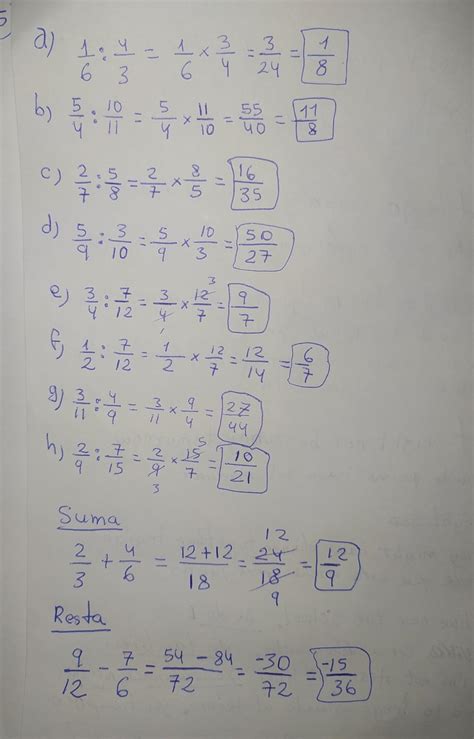 5)
a) 1/6 : 4/3 = 1/6 × 3/4 = 3/24 = 1/8
b) 5/4 : 10/11 = 5/4 × 11/10 = 55/40 = 11/8
c) 2/7 : 5/8 = 2/7 × 8/5 = 16/35
d) 5/9 : 3/10 = 5/9 × 10/3 = 50/27
e) 3/4 : 7/12 = 3/4 × 12/7 = 9/7
f) 1/2 : 7/12 = 1/2 × 12/7 = 12/14 = 6/7
g) 3/11 : 4/9 = 3/11 × 9/4 = 27/44
h) 2/9 : 7/15 = 2/9 × 15/7 = 10/21
Suma
2/3 + 4/6 = 12+12/18 = 24/18 = 12/9
Resta
9/12 - 7/6 = 54 - 84/72 = -30/72 = -15/36